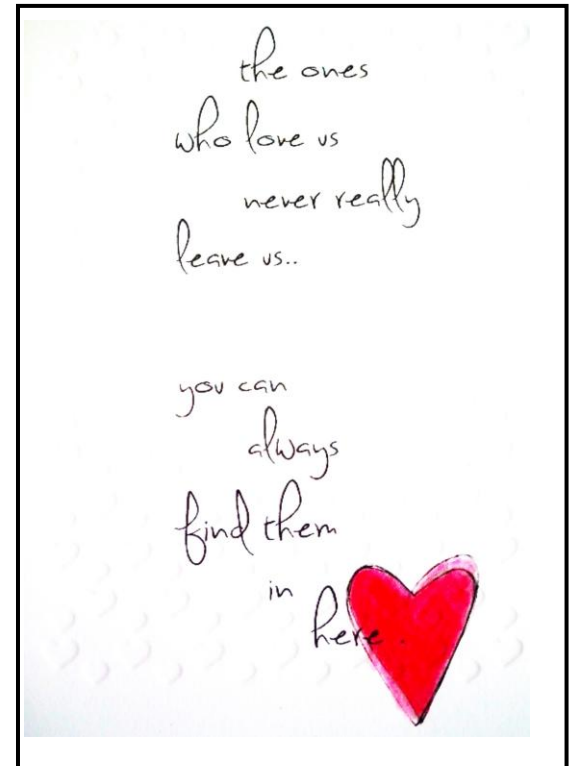 the ones
who love us
never really
leave us..
you can
always
find them
in
here.